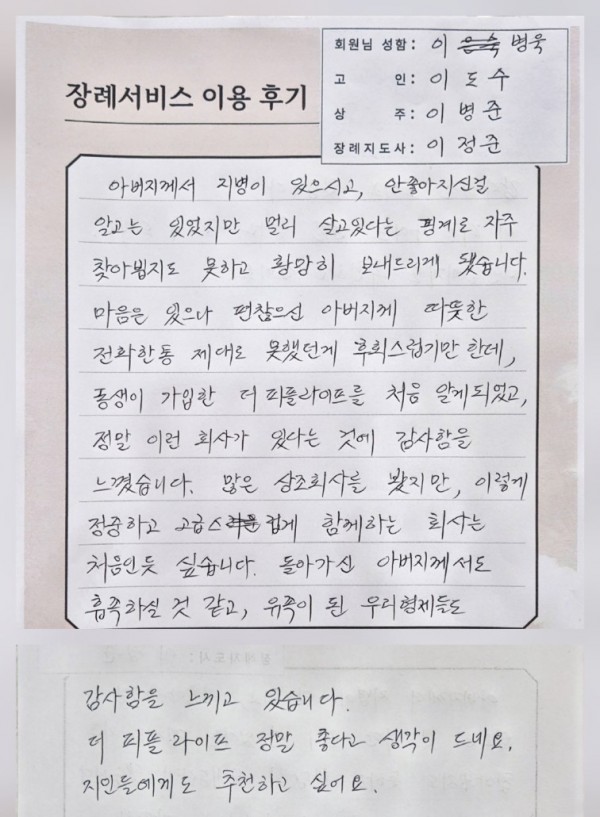 장례서비스 이용 후기
회원님 성함: 이 병욱
고 인: 이 도수
상 주: 이 병준
장례지도사: 이 정준
아버지께서 지병이 있으시고, 안좋아지신걸
알고는 있었지만 멀리 살고있다는 핑계로 자주
찾아뵙지도 못하고 황망히 보내드리게 됐습니다.
마음은 있으나 편찮으신 아버지께 따뜻한
전화한통 제대로 못했던게 후회스럽기만 한데,
동생이 가입한 더 피플라이프를 처음 알게되었고,
정말 이런 회사가 있다는 것에 감사함을
느꼈습니다. 많은 상조회사를 봤지만, 이렇게
정중하고 고급스럽게 함께하는 회사는
처음인듯 싶습니다. 돌아가신 아버지께서도
흡족하실 것 같고, 유족이 된 우리형제들도
감사함을 느끼고 있습니다.
더 피플 라이프 정말 좋다고 생각이 드네요.
지인들에게도 추천하고 싶어요.